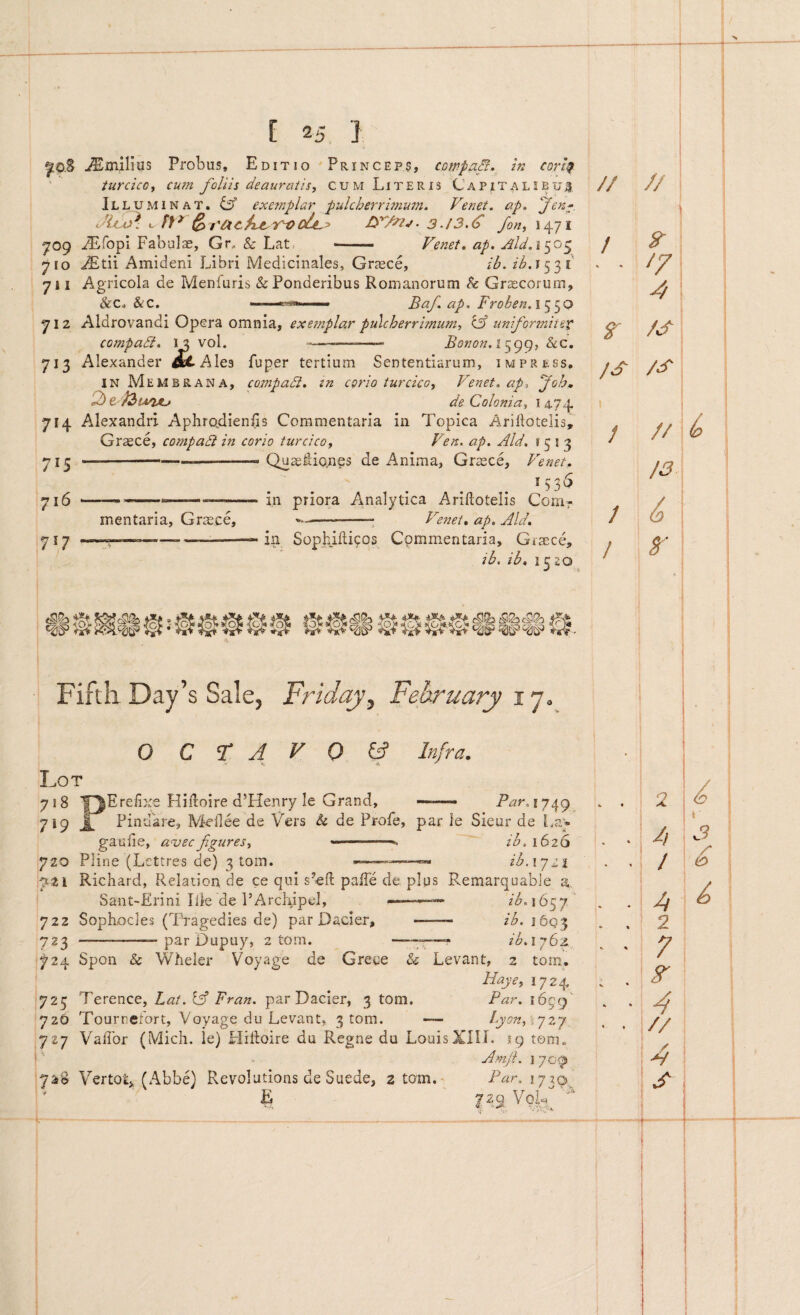 [ 25 ]
708 Æmilius Probus, Editio Princeps, compact. in corio // //
turcico, cum foliis deauratis, cum Literis Capitalibus
Illuminat. & exemplar pulcherrimum. Venet. ap. Jen-
3.13.6 son, 1471
709 Æsopi Fabulæ, Gr. & Lat. —— Venet. ap. Ald. 1505 / 8
710 Ætii Amideni Libri Medicinales, Græcé, ib. ib. 1531 . . 17
711 Agricola de Mensuris & Ponderibus Romanorum & Græcorum, 4
&c. &c. —— Bas. ap. Froben. 1550
712 Aldrovandi Opera omnia, exemplar pulcherrimum, & uniformiter 8 15
compact. 13 vol. —— Bonon. 1599, &c.
713 Alexander de Ales super tertium Sententiarum, impress. 15 15
in Membrana, compact. in corio turcico, Venet. ap. Joh.
de Colonia, 1474
714 Alexandri Aphrodiensis Commentaria in Topica Aristotelis, 1 11 6
Græcé, compact in corio turcico, Ven. ap. Ald. 1513
715 —— Quæstiones de Anima, Græcé, Venet. 13
1536
716 —— in priora Analytica Aristotelis Com-
mentaria, Græcé, —— Venet. ap. Ald. 1 6
717 —— in Sophisticos Commentaria, Græcé, 1 8
ib. ib. 1520
Fifth Day's Sale, Friday, February 17.
OCTAVO & Infra.
Lot
718 PErefixe Histoire d'Henry le Grand, —— Par. 1749 . . 2 6
719 Pindare, Meslée de Vers & de Prose, par le Sieur de La-
gausie, avec figures, —— ib. 1626 . . 4 3
720 Pline (Lettres de) 3 tom. —— ib. 1721 . . 1 6
721 Richard, Relation de ce qui s'est passé de plus Remarquable a
Sant-Erini Isle de l'Archipel, —— ib. 1657 . . 4 6
722 Sophocles (Tragedies de) par Dacier, —— ib. 1693 . . 2
723 —— par Dupuy, 2 tom. —— ib. 1762 . . 7
724 Spon & Wheler Voyage de Grece & Levant, 2 tom.
Haye, 1724 . . 8
725 Terence, Lat. & Fran. par Dacier, 3 tom. Par. 1699 . . 4
726 Tournefort, Voyage du Levant, 3 tom. —— Lyon, 1727 . . 11
727 Vassor (Mich. le) Histoire du Regne du Louis XIII. 19 tom.
Amst. 1709 4
728 Vertot, (Abbé) Revolutions de Suede, 2 tom. Par. 1730 5
E 729 Vol.